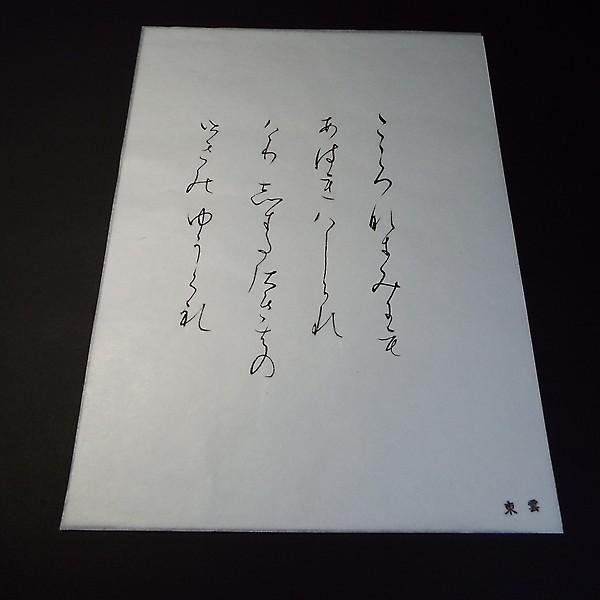 こころ なきみにも
あはれ はしられ
けり しきたつさはの
あきの ゆふくれ
東雲